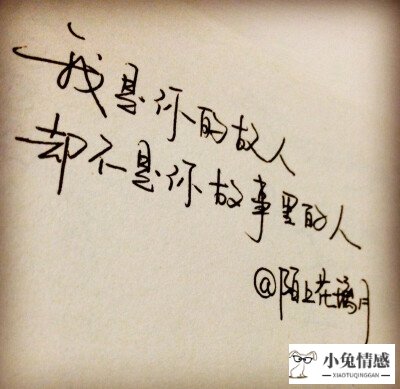 我是你的故人
却不是你故事里的人
@陌上花璃月
小兔情感
XIAOTUQINGGAN